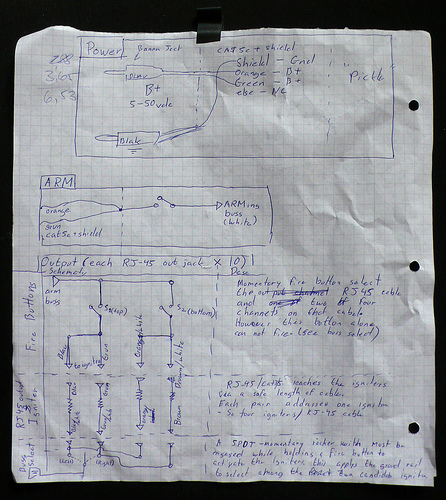 Power
Banana Jack
CAT5c + shield
Shield - Gnd
Orange - B+
Green - B+
else - NC
Pickle
3,65
6,53
B+
5-50 volt
Black
ARM
orange
Brwn
cat5c + shield
ARMing
buss
(white)
Output (each RJ-45 out jack X 10)
Schematic
Desc
arm
buss
Fire Buttons
S1(top)
S2(bottom)
Momentary fire button select
the out RJ45 cable
and two of four
channels on that cable
However this button alone
can not fire (see buss select)
Blue
Green
Orange/white
Brown/white
RJ45 out
Igniter
Brown
RJ-45/cat5c reaches the igniters
via a safe length of cable.
Each pair addresses one igniter
- So four igniters/RJ-45 cable
Buss
Select
(left)
(right)
A SPDT-momentary rocker switch must be
engaged while holding a fire button to
activate the igniters, this applys the ground rail
to select among the two candidate igniters